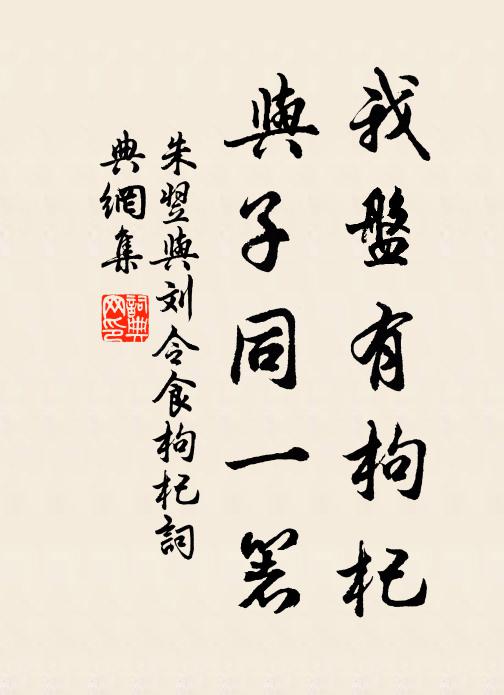 我盤有枸杞
與子同一箸
朱翌與刘令食枸杞詞
典網集
詞典网印